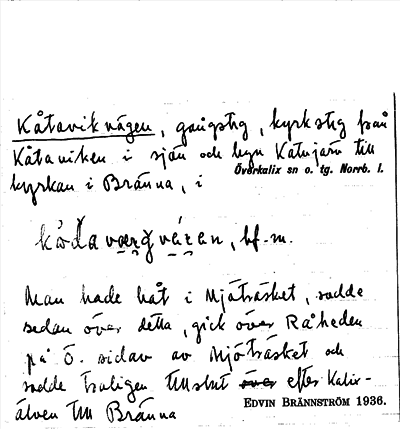 Kåtavikvägen, gångstig, kyrkstig från
Kåtaviken i sjön och byn Katujärv till
Överkalix sn o. tg. Norrb. l.
kyrkan i Bränna, i
bf. m.
Man hade båt i Mjöträsket, rodde
sedan över detta, gick över Råheden
på Ö. sidan av Mjöträsket och
rodde troligen till slut efter Kalix-
älven till Bränna
EDVIN BRÄNNSTRÖM 1936.